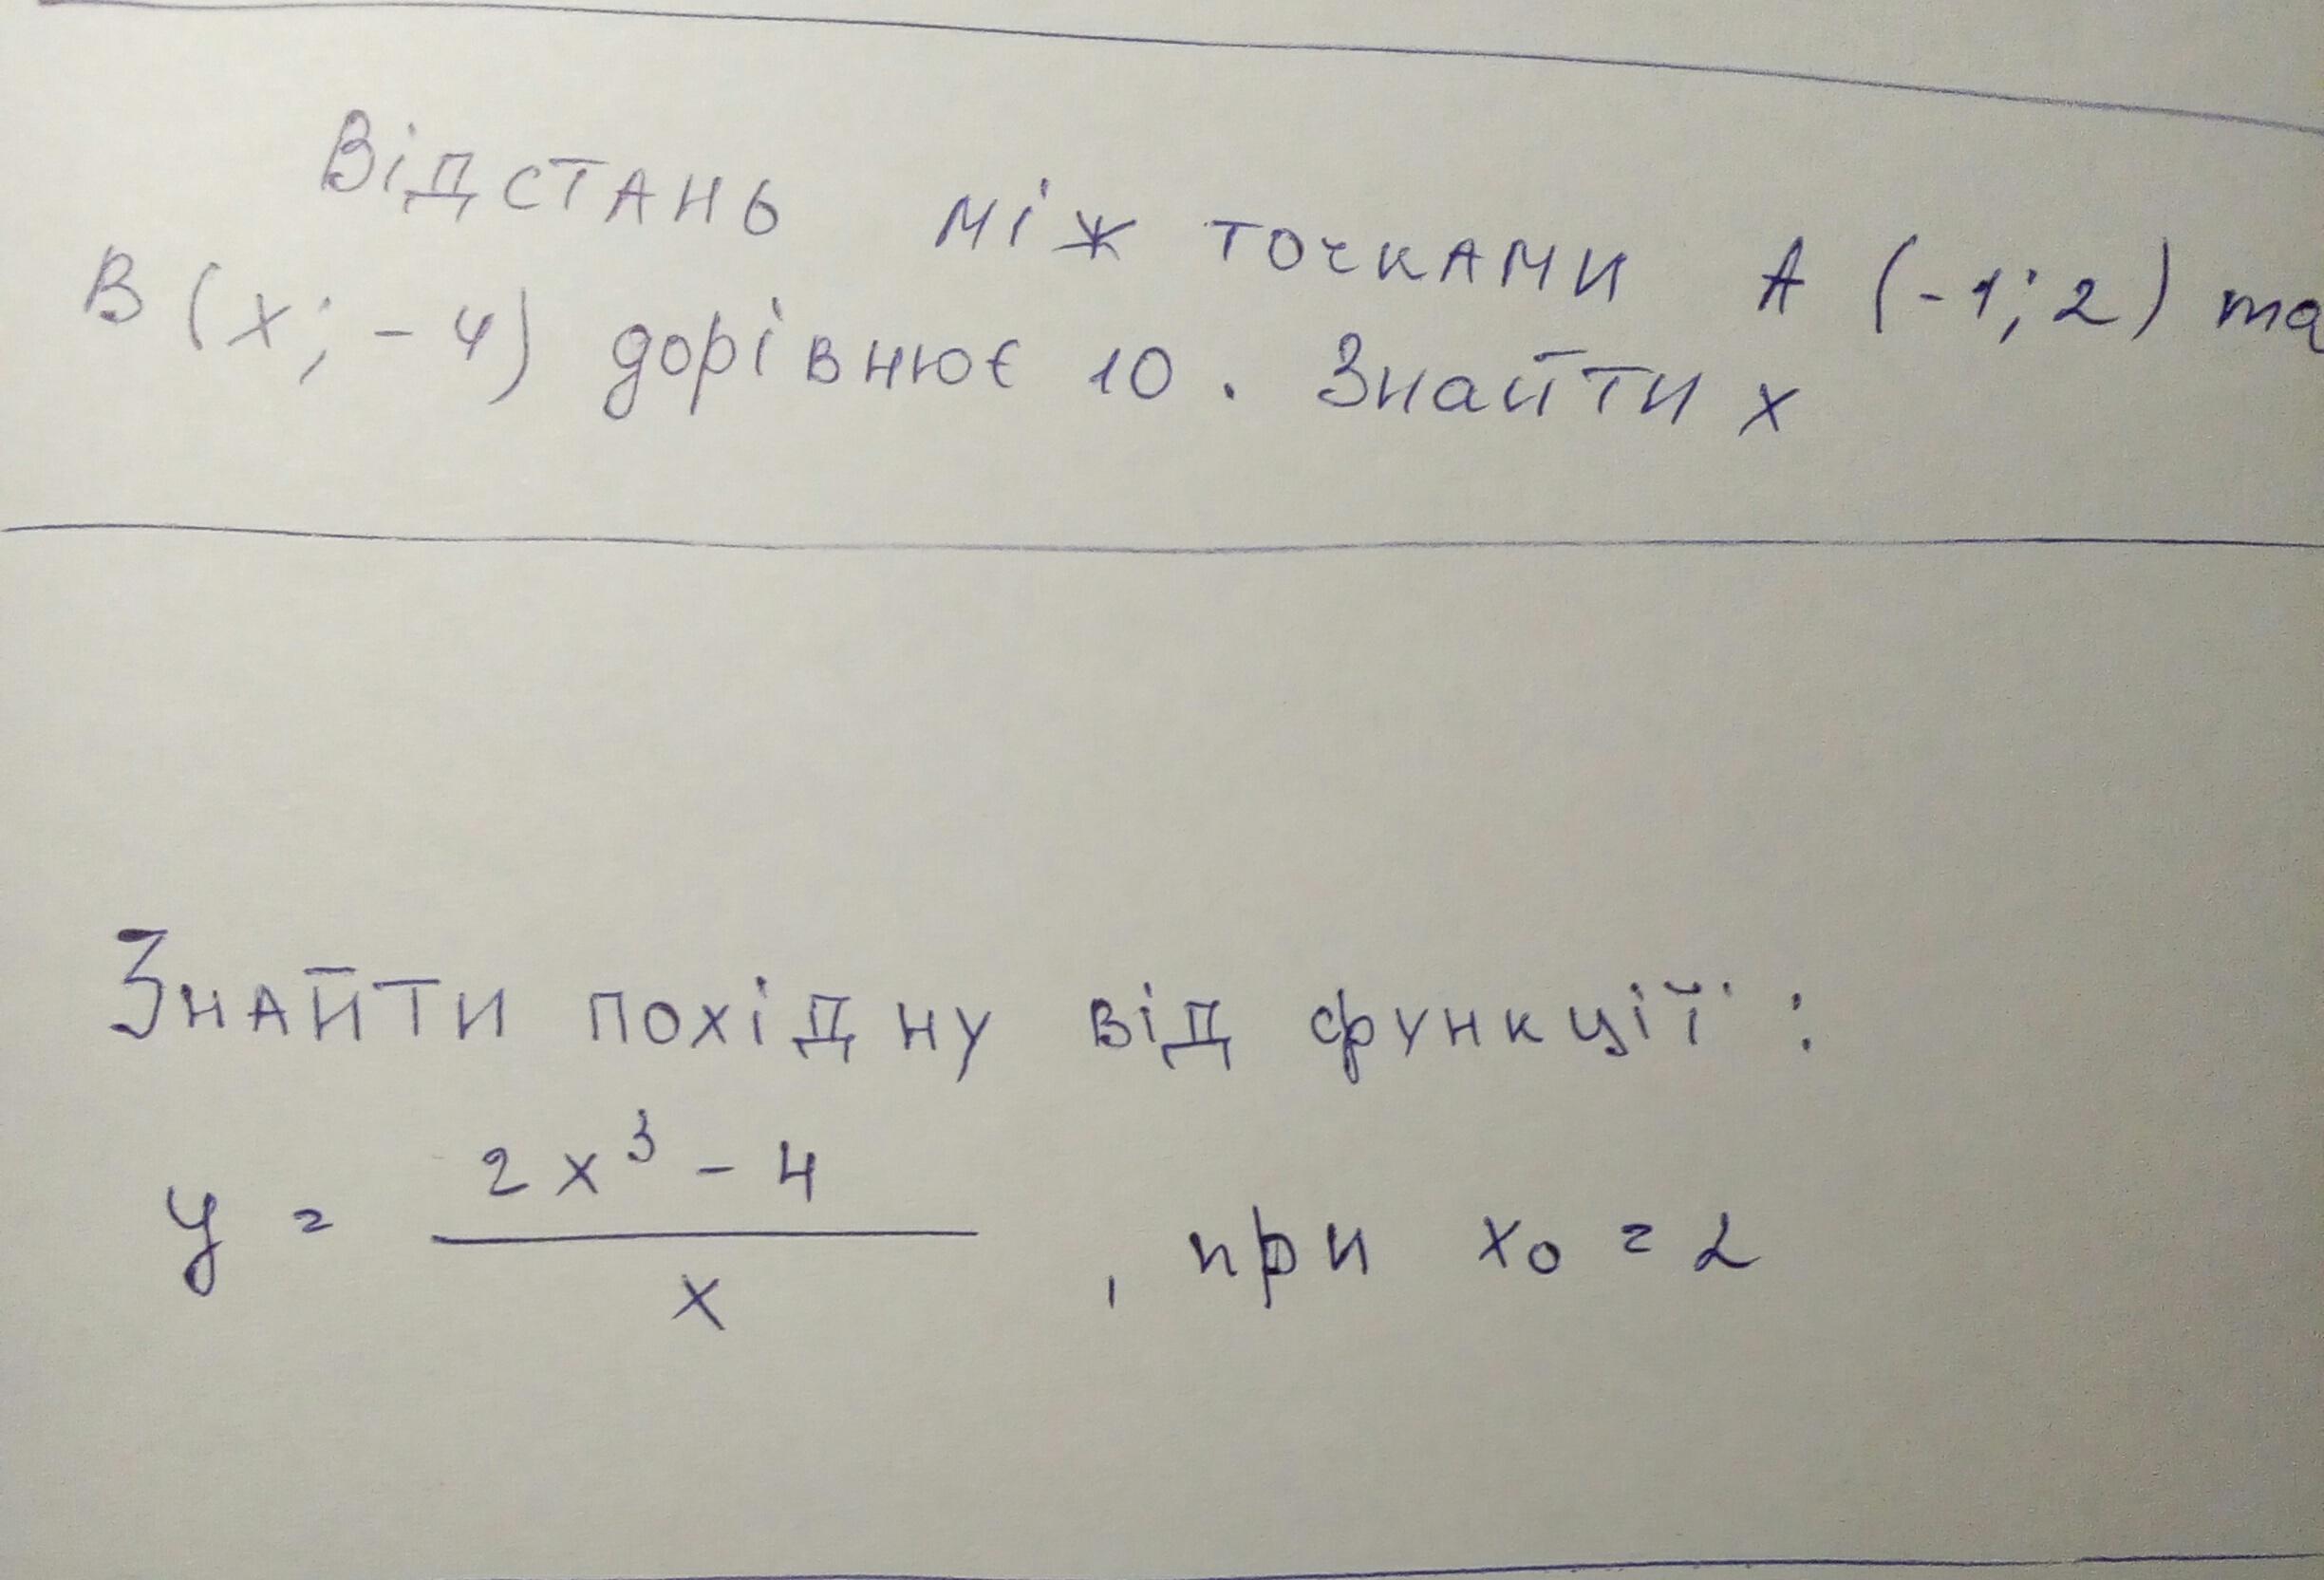 Відстань між точками А (-1; 2) та
В (х; -4) дорівнює 10. Знайти х
Знайти похідну від функції:
y = \frac{2x^3 - 4}{x}, при x_0 = 2